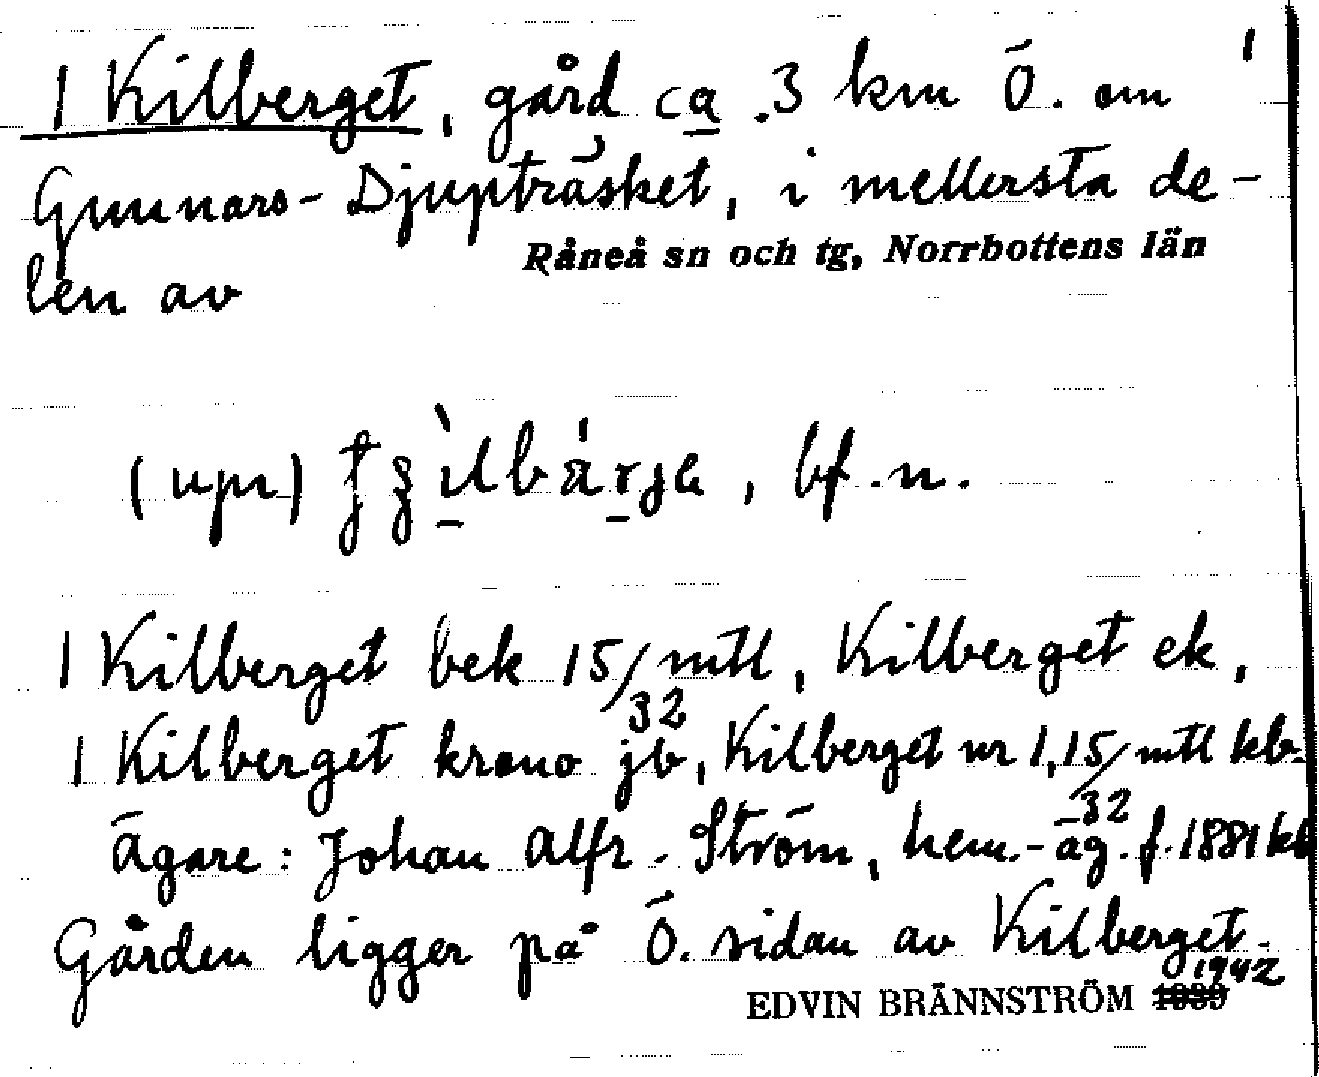 1 Kilberget, gård ca 3 km Ö. om
Gunnars-Djupträsket, i mellersta de-
len av
Råneå sn och tg, Norrbottens län
(upr) , bf.n.
1 Kilberget bek 15/32 mtl, Kilberget ek,
1 Kilberget krono jb, Kilberget nr 1, 15/32 mtl kb.
Ägare: Johan Alfr. Ström, hem.-äg. f. 1881 kb
Gården ligger på Ö. sidan av Kilberget.
EDVIN BRÄNNSTRÖM 1939 1942